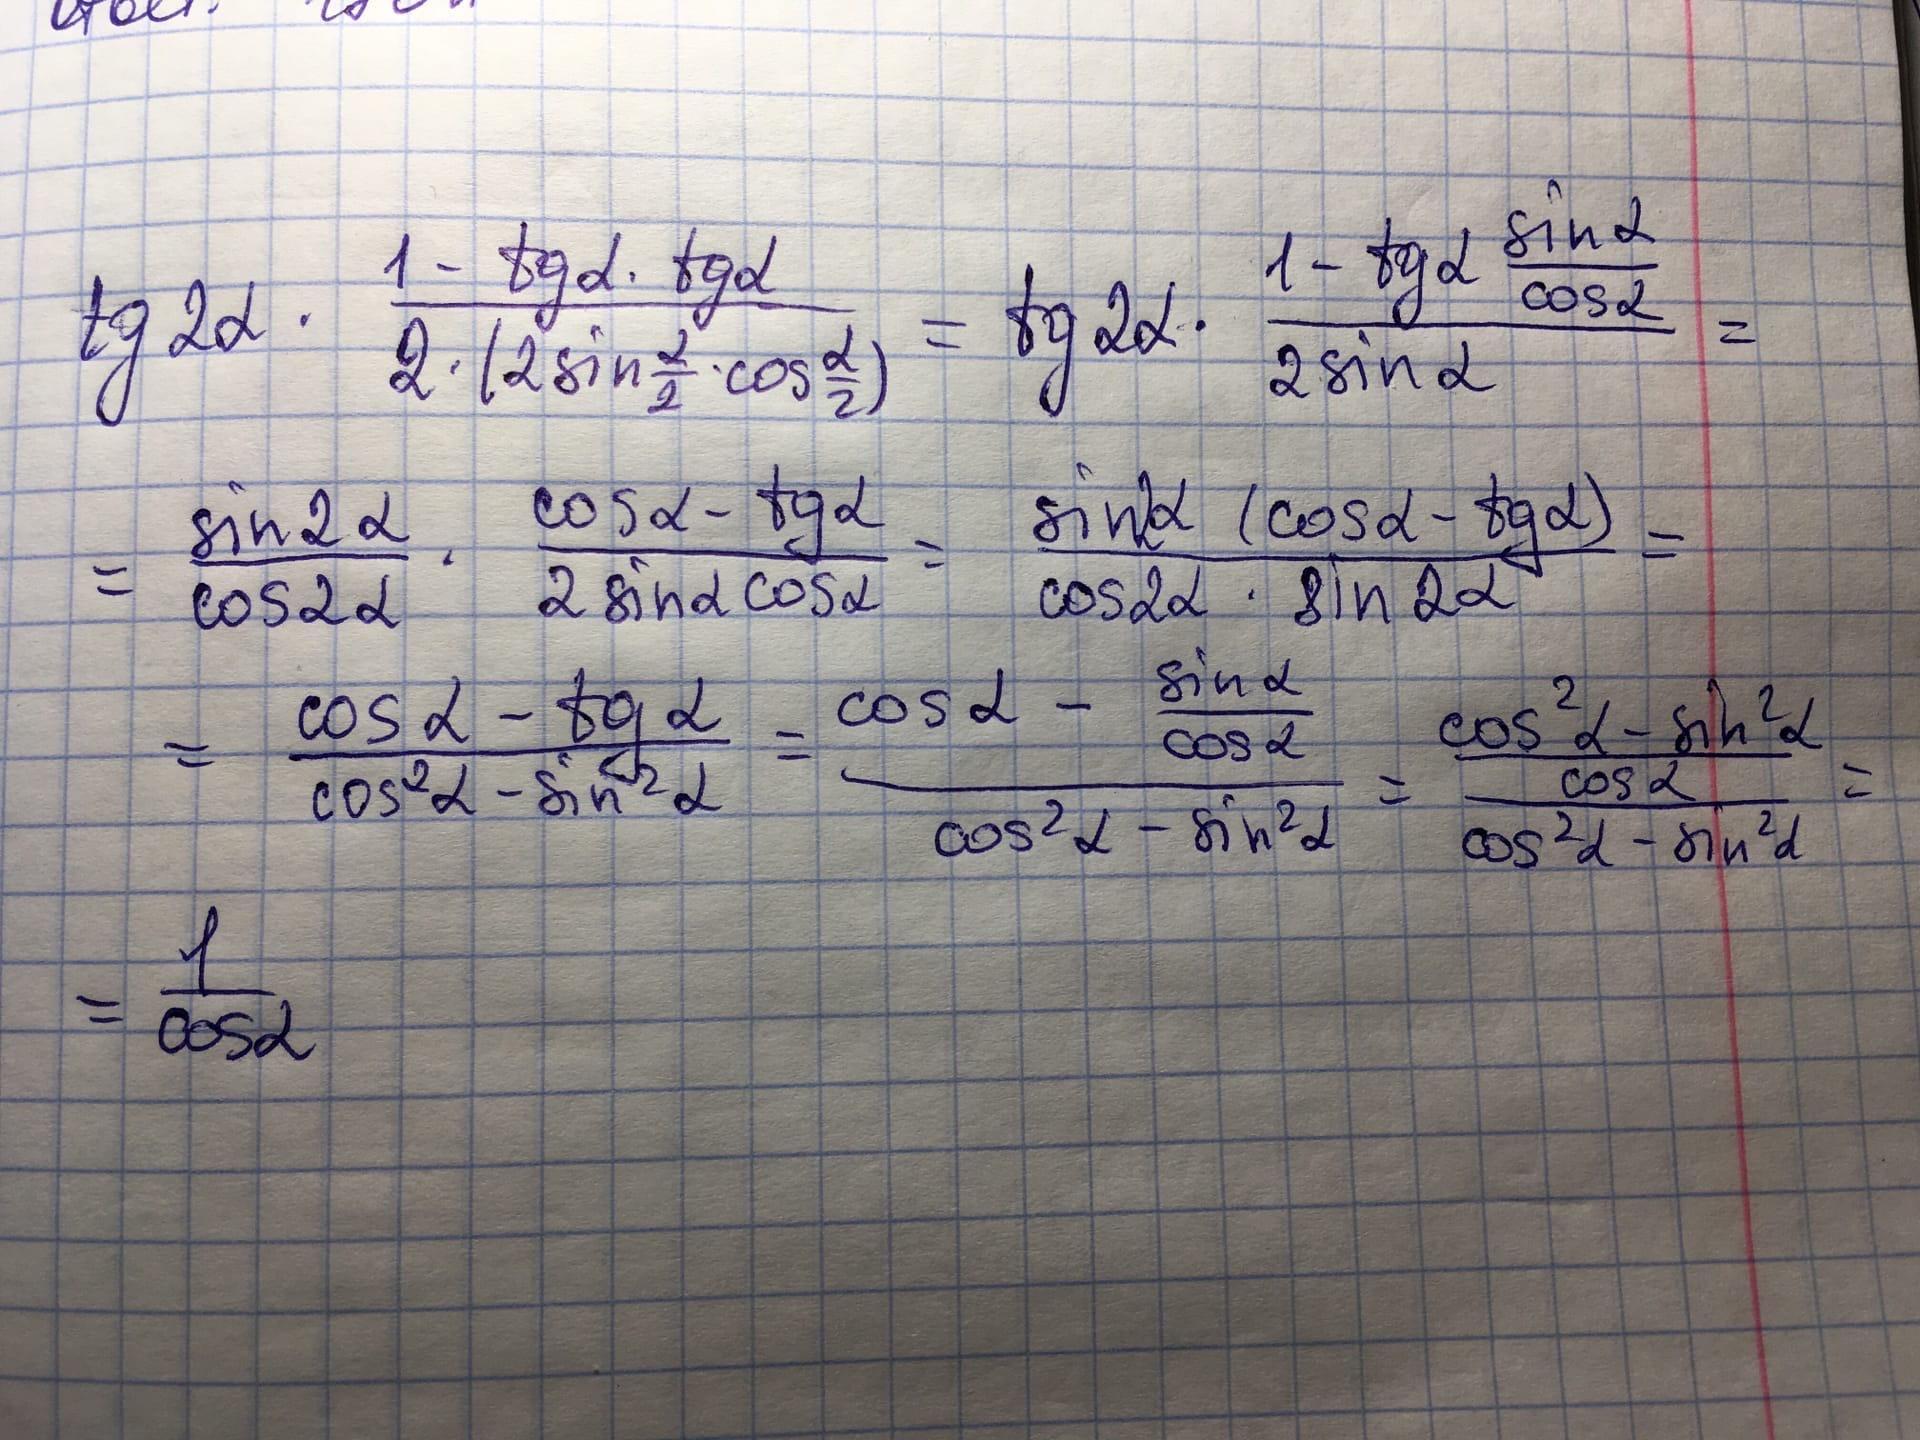 tg2α · (1 - tgα · tgα)/(2·(2sin α/2 · cos α/2)) = tg2α · (1 - tgα sinα/cosα)/(2sinα) =
= sin2α/cos2α · (cosα - tgα)/(2sinαcosα) = sin2α (cosα - tgα)/(cos2α · sin2α) =
= (cosα - tgα)/(cos²α - sin²α) = (cosα - sinα/cosα)/(cos²α - sin²α) = ((cos²α - sin²α)/cosα)/(cos²α - sin²α) =
= 1/cosα